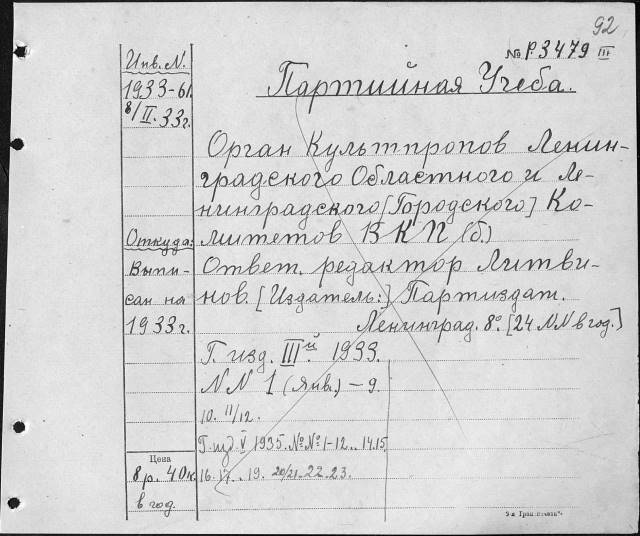 92
№ Р.3479 III
Инв. N.
1933-61.
8/II.33г.
Партийная Учеба.
Орган Культпропов Ленин-
градского Областного и Ле-
нинградского [Городского] Ко-
митетов ВКП (б.)
Откуда:
Выпи-
сан на
1933г.
Ответ. редактор Литви-
нов. [Издатель:] Партиздат.
Ленинград. 8º. [24 NN в год.]
Г. изд. III й. 1933.
NN 1 (Янв.) – 9.
10. 11/12.
Г. изд. V 1935. №№ 1-12.. 14.15.
16. 17.. 19. 20/21. 22. 23.
Цена
8 р. 40 к.
в год.